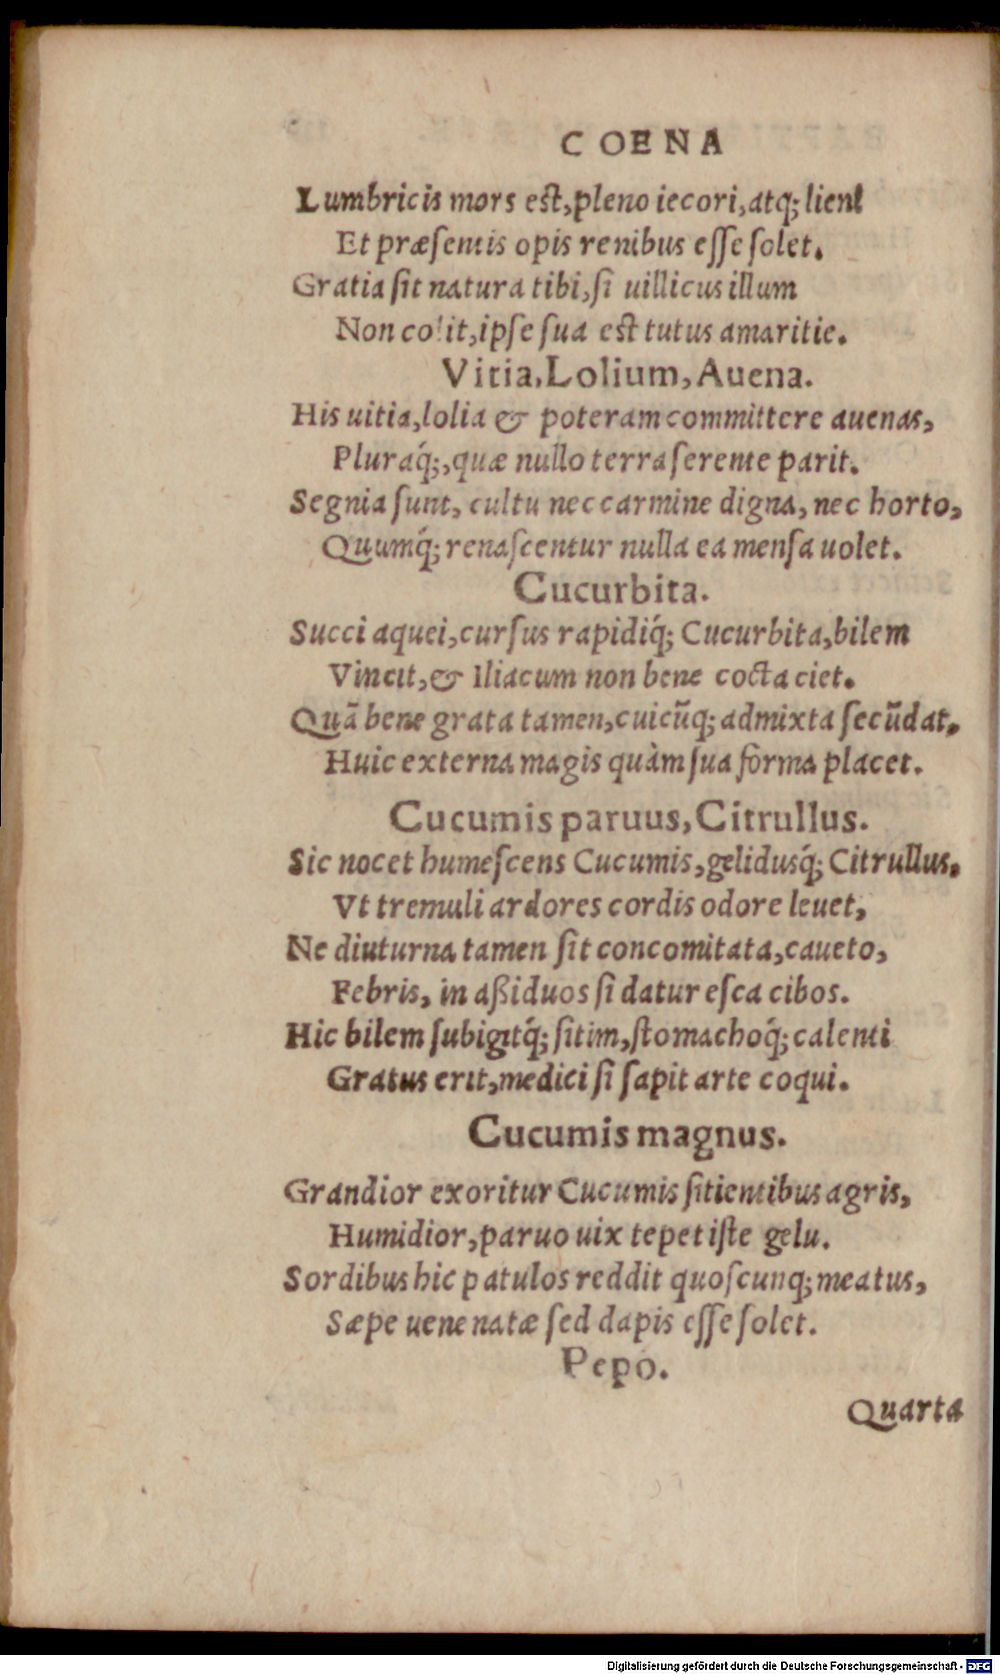 COENA
Lumbricis mors est, pleno iecori, atq; lieni
Et præsentis opis renibus esse solet.
Gratia sit natura tibi, si uillicus illum
Non colit, ipse sua est tutus amaritie.
Vitia, Lolium, Auena.
His uitia, lolia & poteram committere auenas,
Pluraq́;, quæ nullo terra serente parit.
Segnia sunt, cultu nec carmine digna, nec horto,
Quumq́; renascentur nulla ea mensa uolet.
Cucurbita.
Succi aquei, cursus rapidiq́; Cucurbita, bilem
Vincit, & Iliacum non bene cocta ciet.
Quā bene grata tamen, cuicũq; admixta secũdat,
Huic externa magis quàm sua forma placet.
Cucumis paruus, Citrullus.
Sic nocet humescens Cucumis, gelidusq́; Citrullus,
Vt tremuli ardores cordis odore leuet,
Ne diuturna tamen sit concomitata, caueto,
Febris, in aßiduos si datur esca cibos.
Hic bilem subigitq́; sitim, stomachoq́; calenti
Gratus erit, medici si sapit arte coqui.
Cucumis magnus.
Grandior exoritur Cucumis sitientibus agris,
Humidior, paruo uix tepet iste gelu.
Sordibus hic patulos reddit quoscunq; meatus,
Sæpe uenenatæ sed dapis esse solet.
Pepo.
Quarta
Digitalisierung gefördert durch die Deutsche Forschungsgemeinschaft - DFG